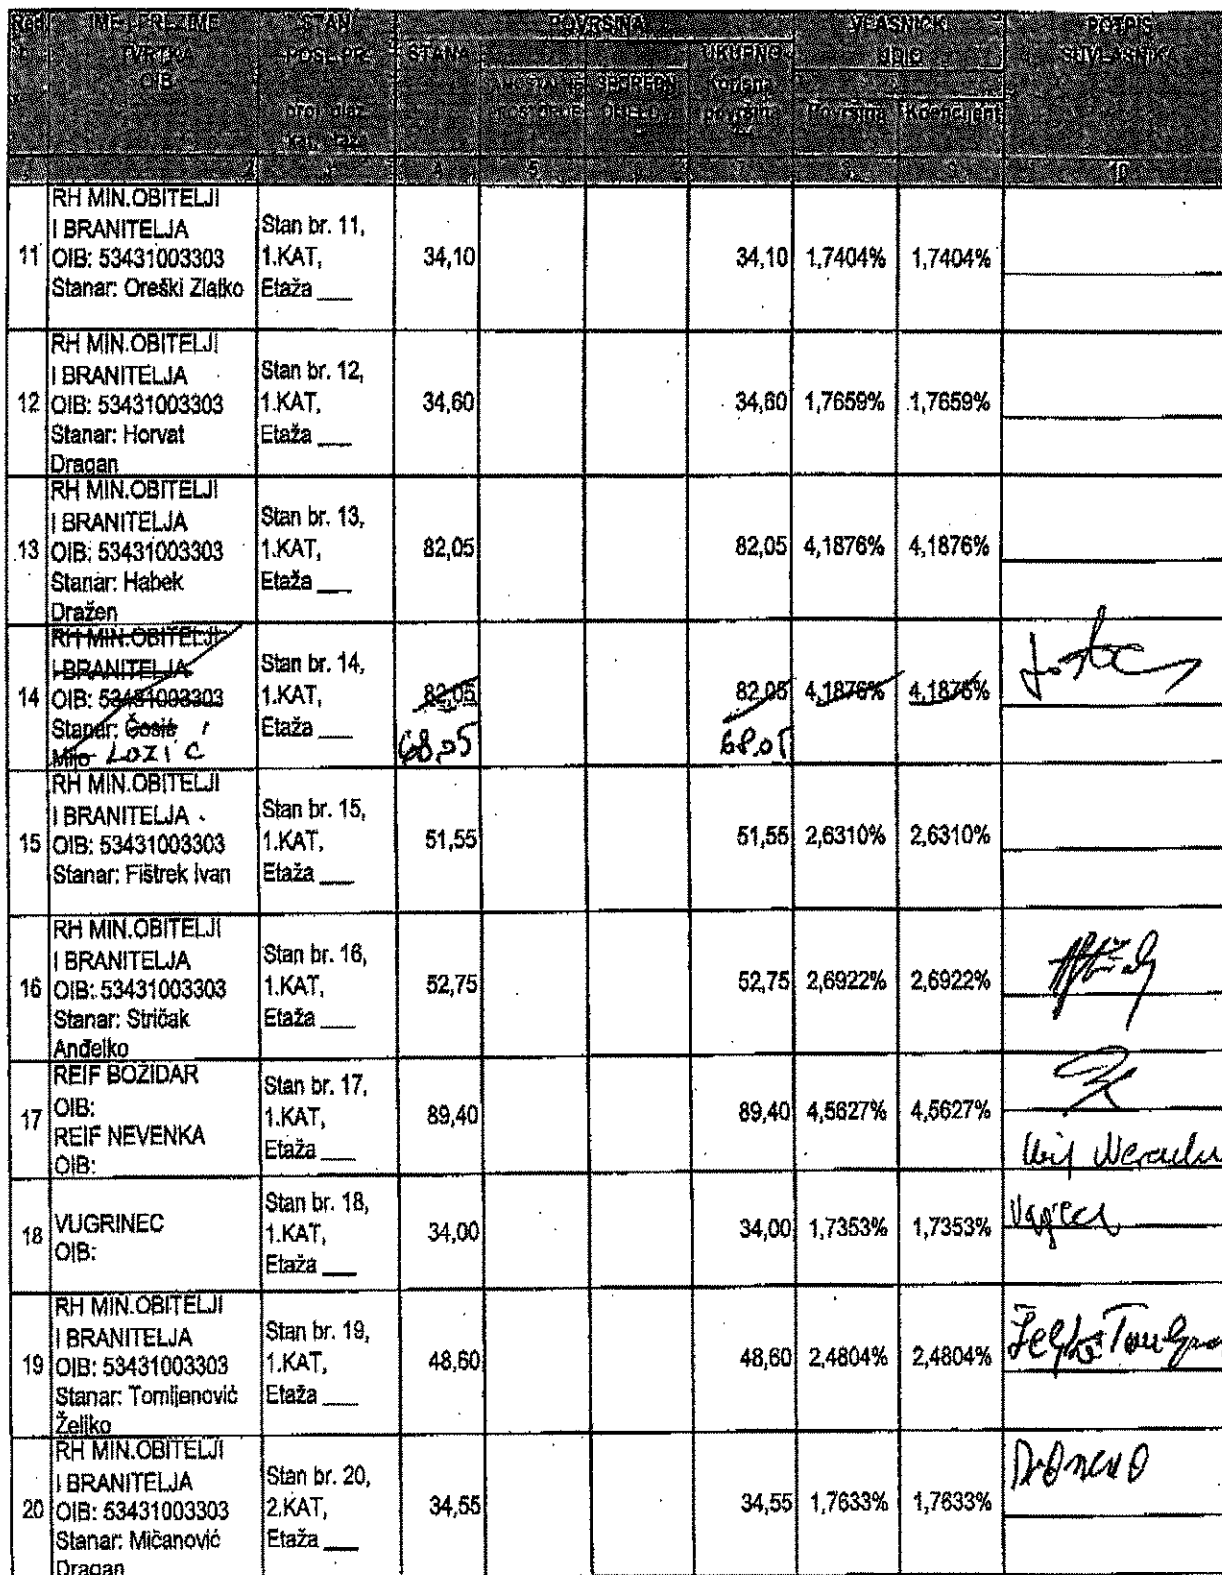 IME I PREZIME
STAN
POVRŠINA
POTPIS
TVRTKA
STANA
UKUPNO
SUVLASNIKA
OIB
površina
Površina
10
11
RH MIN.OBITELJI
I BRANITELJA
OIB: 53431003303
Stanar: Oreški Zlatko
Stan br. 11,
1.KAT,
Etaža ___
34,10
34,10
1,7404%
1,7404%
12
RH MIN.OBITELJI
I BRANITELJA
OIB: 53431003303
Stanar: Horvat
Dragan
Stan br. 12,
1.KAT,
Etaža ___
34,60
34,60
1,7659%
1,7659%
13
RH MIN.OBITELJI
I BRANITELJA
OIB: 53431003303
Stanar: Habek
Dražen
Stan br. 13,
1.KAT,
Etaža ___
82,05
82,05
4,1876%
4,1876%
14
RH MIN.OBITELJI
I BRANITELJA
OIB: 53431003303
Stanar: Ćosić
Mijo LOZIĆ
Stan br. 14,
1.KAT,
Etaža ___
82,05
68,05
82,05
68,05
4,1876%
4,1876%
15
RH MIN.OBITELJI
I BRANITELJA
OIB: 53431003303
Stanar: Fištrek Ivan
Stan br. 15,
1.KAT,
Etaža ___
51,55
51,55
2,6310%
2,6310%
16
RH MIN.OBITELJI
I BRANITELJA
OIB: 53431003303
Stanar: Stričak
Anđelko
Stan br. 16,
1.KAT,
Etaža ___
52,75
52,75
2,6922%
2,6922%
17
REIF BOŽIDAR
OIB:
REIF NEVENKA
OIB:
Stan br. 17,
1.KAT,
Etaža ___
89,40
89,40
4,5627%
4,5627%
18
VUGRINEC
OIB:
Stan br. 18,
1.KAT,
Etaža ___
34,00
34,00
1,7353%
1,7353%
19
RH MIN.OBITELJI
I BRANITELJA
OIB: 53431003303
Stanar: Tomljenović
Željko
Stan br. 19,
1.KAT,
Etaža ___
48,60
48,60
2,4804%
2,4804%
20
RH MIN.OBITELJI
I BRANITELJA
OIB: 53431003303
Stanar: Mičanović
Dragan
Stan br. 20,
2.KAT,
Etaža ___
34,55
34,55
1,7633%
1,7633%